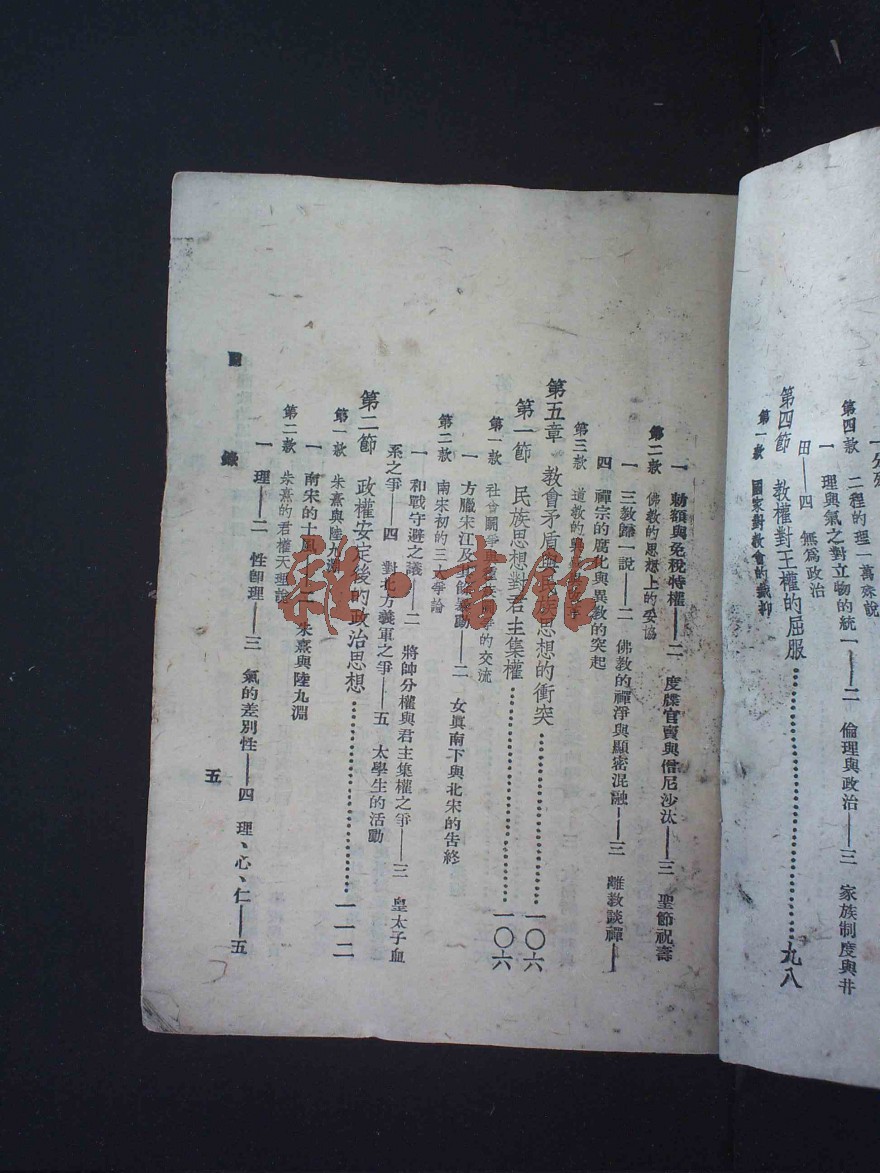 第四款 二程的理一萬殊說
一 理與氣之對立物的統一——二 倫理與政治——三 家族制度與井
田——四 無爲政治
第四節 教權對王權的屈服……………九八
第一款 國家對教會的
一 勅額與免稅特權——二 度牒官賣與僧尼沙汰——三 聖節祝壽
第二款 佛教的思想上的妥協
一 三教歸一說——二 佛教的禪淨與顯密混融——三 離教談禪——
四 禪宗的腐化與異教的突起
第三款 道教的
第五章 教會矛盾與 思想的衝突……………一〇六
第一節 民族思想對君主集權……………一〇六
第一款 社會鬭爭 的交流
一 方臘宋江及 暴動——二 女眞南下與北宋的告終
第二款 南宋初的三大爭論
一 和戰守避之議——二 將帥分權與君主集權之爭——三 皇太子血
系之爭——四 對北方義軍之爭——五 太學生的活動
第二節 政權安定後的政治思想……………一一二
第一款 朱熹與陸九淵
一 南宋的士風 朱熹與陸九淵
第二款 朱熹的君權天理說
一 理——二 性卽理——三 氣的差別性——四 理、心、仁——五
目 錄 五
雜·書館